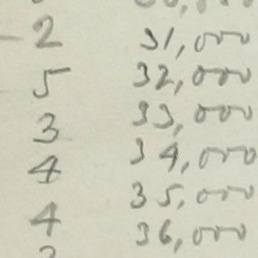 2 31,000
5 32,000
3 33,000
4 34,000
4 35,000
4 36,000